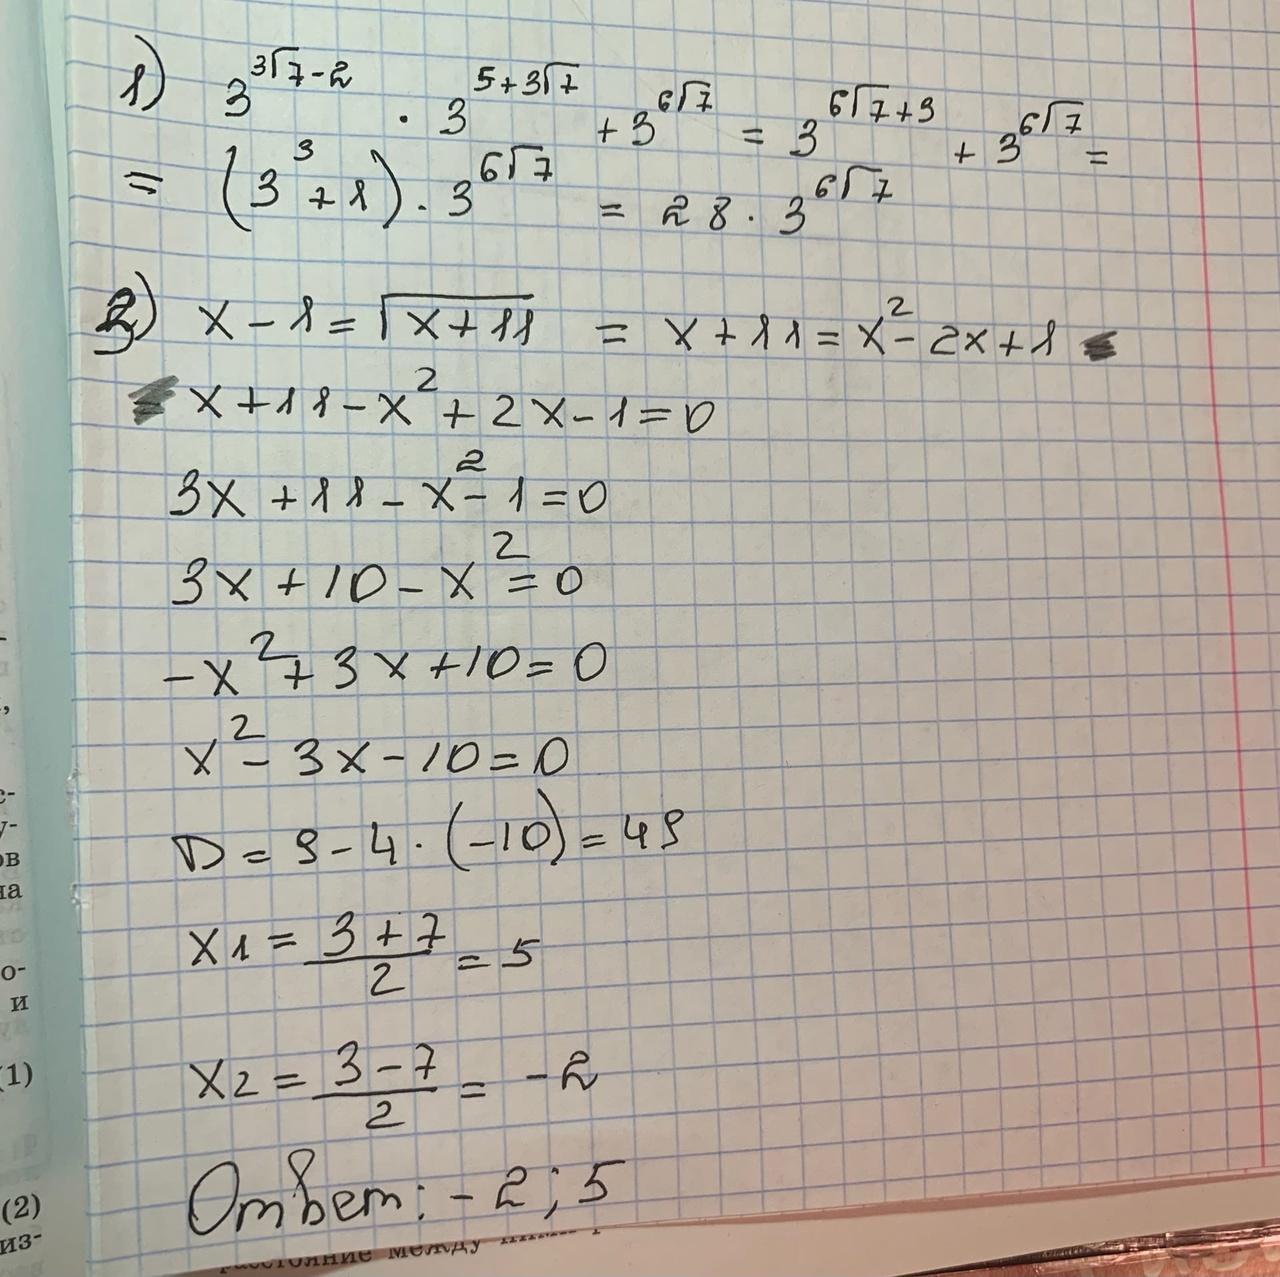 1) 3^(3√7-2) · 3^(5+3√7) + 3^(6√7) = 3^(6√7+3) + 3^(6√7) =
= (3^3 + 1) · 3^(6√7) = 28 · 3^(6√7)
2) x - 1 = √(x+11) = x + 11 = x² - 2x + 1
x + 11 - x² + 2x - 1 = 0
3x + 11 - x² - 1 = 0
3x + 10 - x² = 0
-x² + 3x + 10 = 0
x² - 3x - 10 = 0
D = 9 - 4 · (-10) = 49
x1 = (3 + 7)/2 = 5
x2 = (3 - 7)/2 = -2
Ответ: -2; 5
(1)
(2)
из-
расстояние между ними